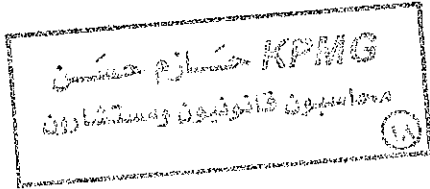 KPMG حازم حسن
محاسبون قانونيون ومستشارون
(١٨)